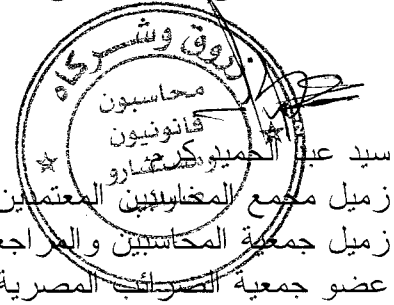 زروق وشركاه
محاسبون
قانونيون
ومستشارو
سيد عبد الحميد كرم
زميل مجمع المحاسبين المعتمدين
زميل جمعية المحاسبين والمراجعين
عضو جمعية الضرائب المصرية